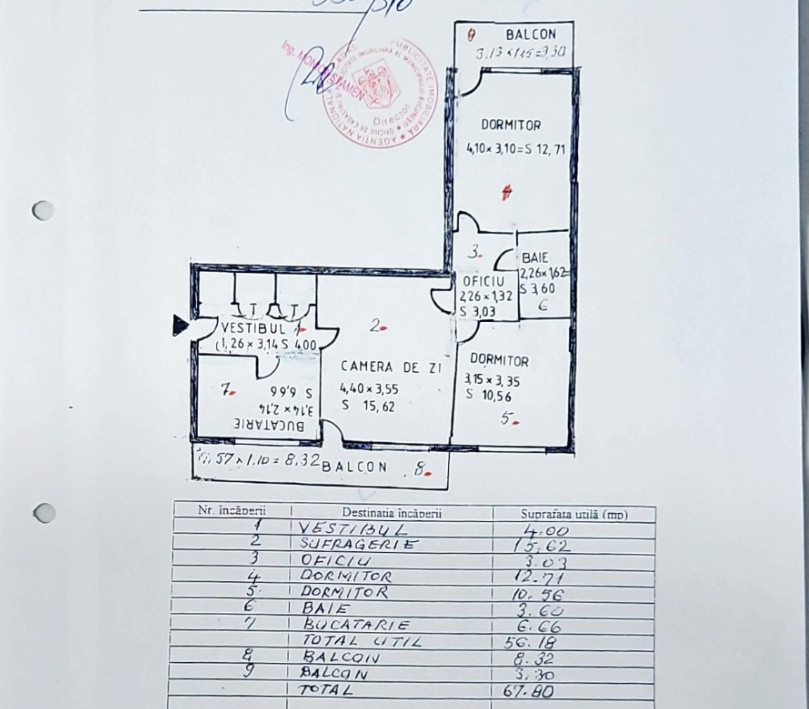 9 BALCON
3.13 x 1.15 = 3,30
DORMITOR
4,10 x 3,10 = S 12,71
4
3.
BAIE
2,26 x 1,62=
S 3,60
6
OFICIU
2,26 x 1,32
S 3,03
VESTIBUL 1.
(1,26 x 3,14 S 4,00
2.
CAMERA DE ZI
4,40 x 3,55
S 15,62
DORMITOR
3,15 x 3,35
S 10,56
5.
7.
BUCATARIE
3,14 x 2,14
S 6,66
57 x 1.10 = 8,32 BALCON 8.
Director
Nr. încăperii Destinatia încăperii Suprafata utilă (mp)
1 VESTIBUL 4.00
2 SUFRAGERIE 15,62
3 OFICIU 3.03
4 DORMITOR 12.71
5 DORMITOR 10.56
6 BAIE 3.60
7 BUCATARIE 6.66
TOTAL UTIL 56.18
8 BALCON 8.32
9 BALCON 3,30
TOTAL 67.80